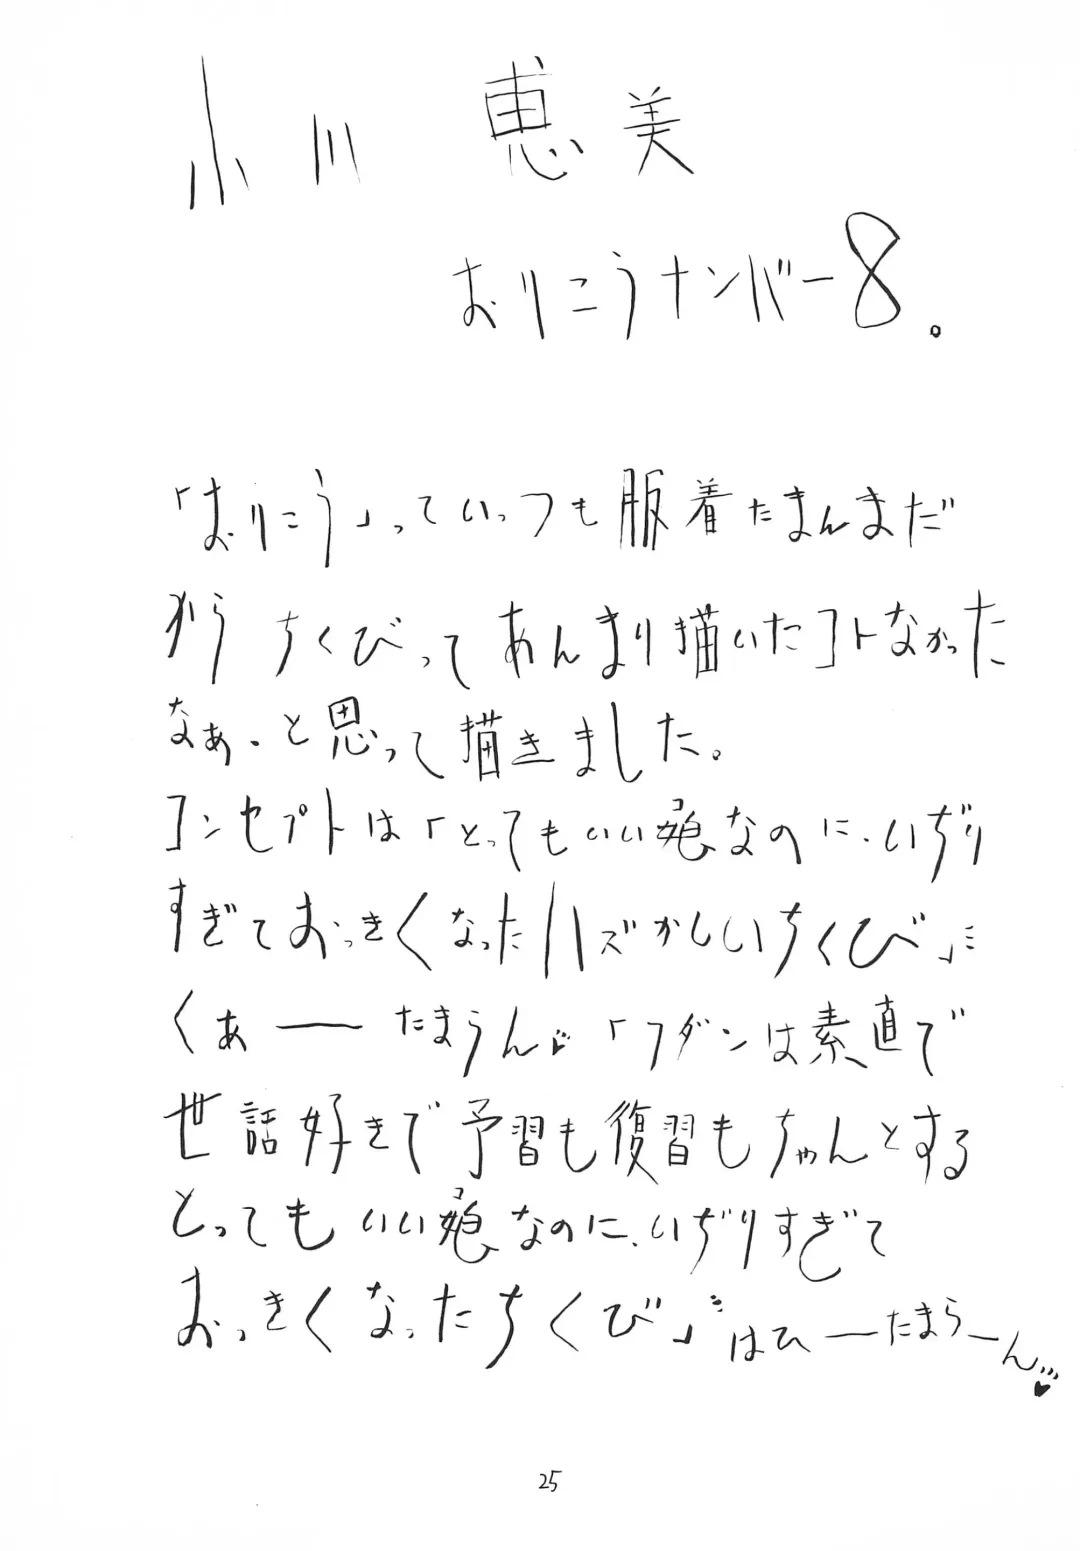 小川 恵美
おりこうナンバー8。
「おりこう」っていっつも服着たまんまだ
から ちくびってあんまり描いたコトなかった
なぁ。と思って描きました。
コンセプトは「とってもいい娘なのに、いぢり
すぎておっきくなったハズかしいちくび」
くぁーーたまらん♥「フダンは素直で
世話好きで予習も復習もちゃんとする
とってもいい娘なのに、いぢりすぎて
おっきくなったちくび」はひーーたまらーん♥
25